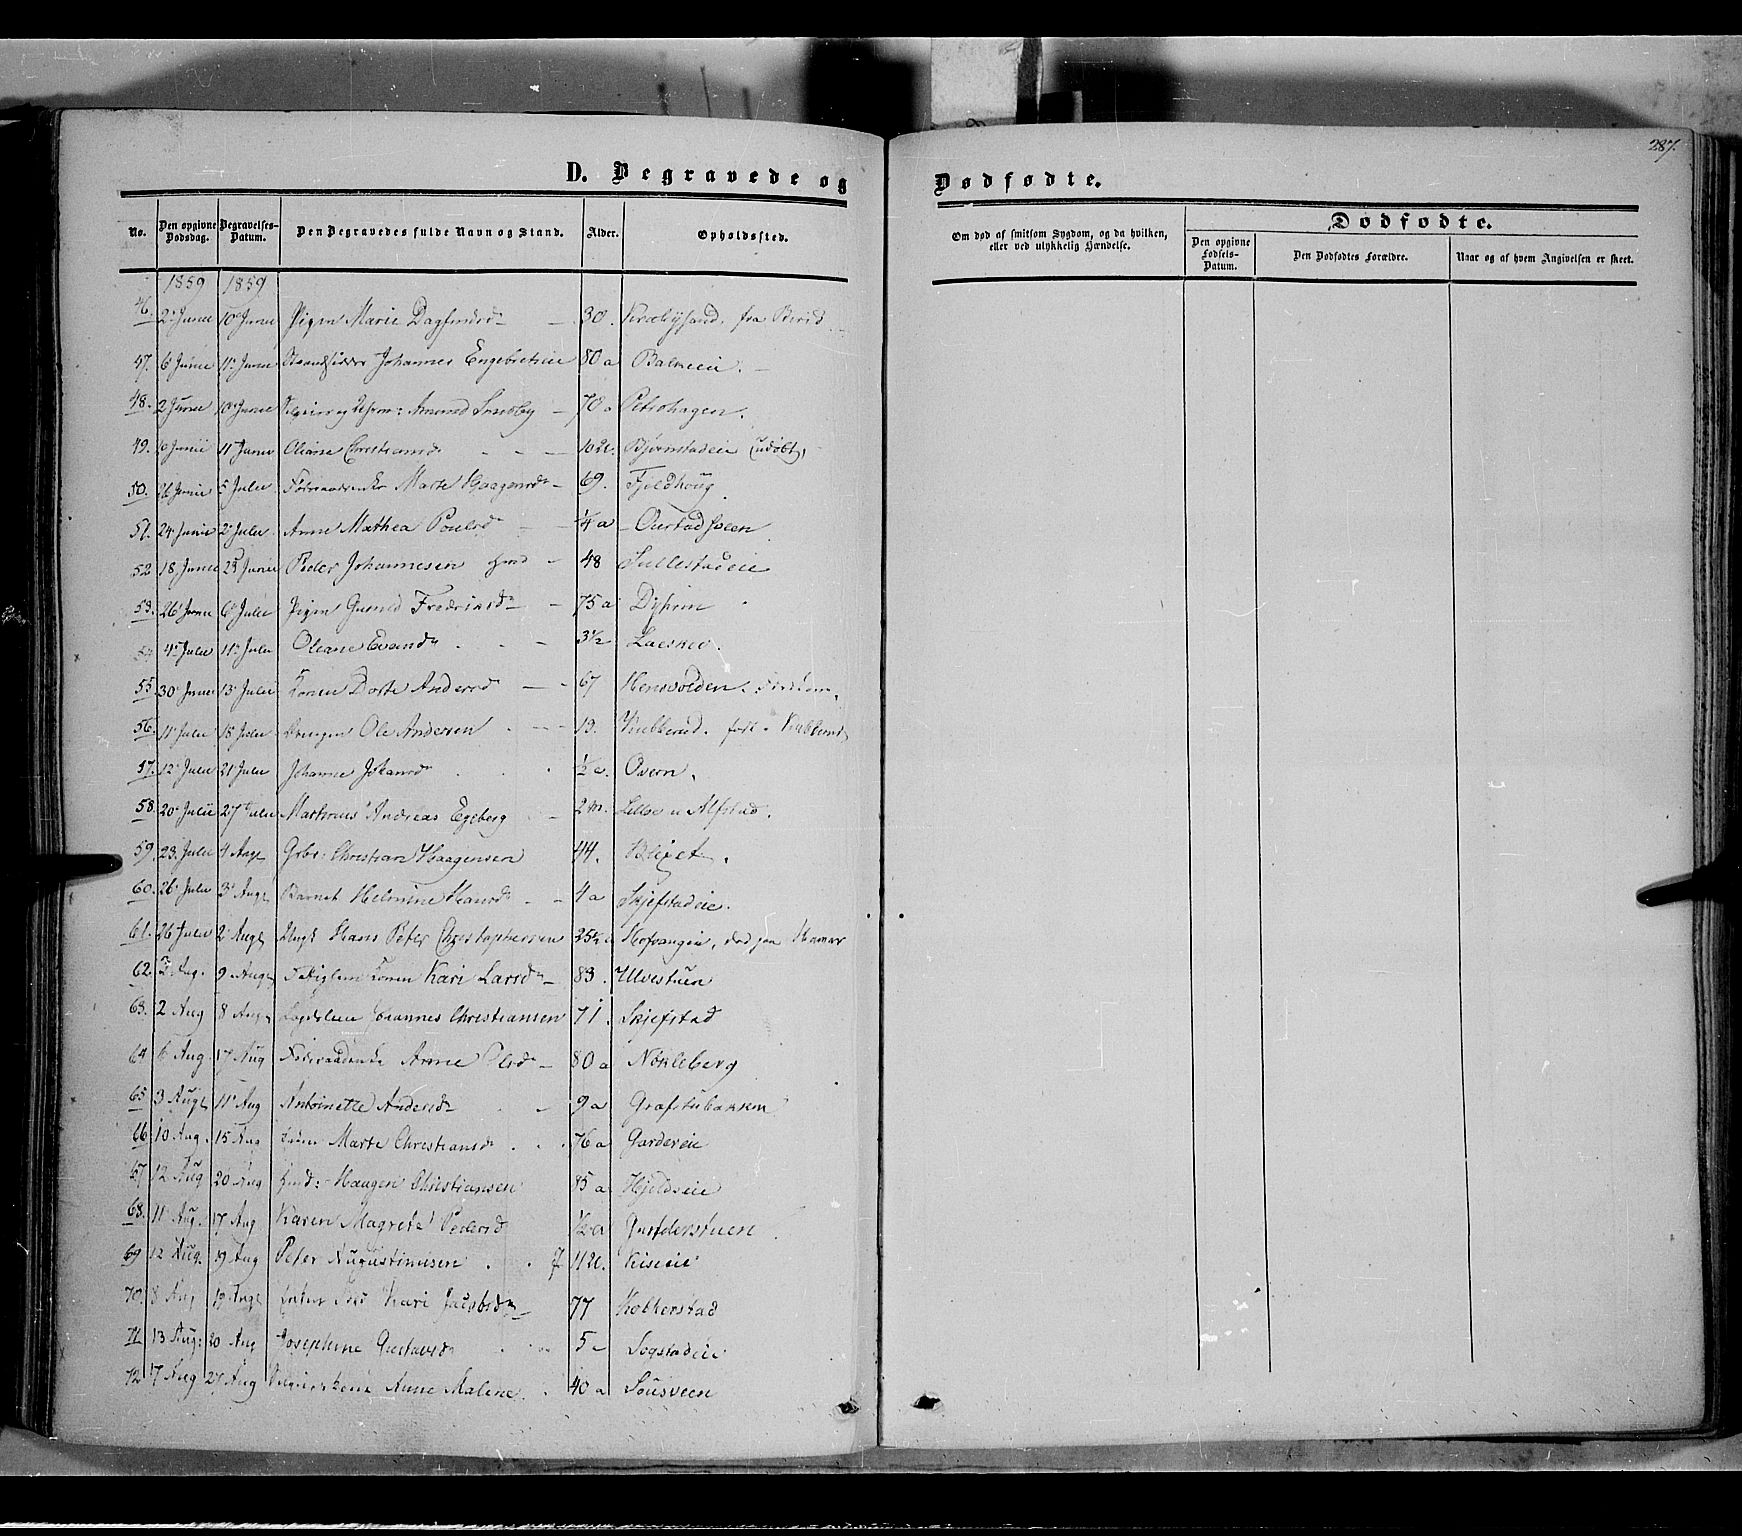 287.
D. Begravede og Dødfødte.
No. Den opgivne Dødsdag. Begravelses-Datum. Den Begravedes fulde Navn og Stand. Alder. Opholdssted. Om død af smitsom Sygdom, og da hvilken, eller ved ulykkelig Hændelse. Dødfødte.
Den opgivne Fødsels-Datum. Den Dødfødtes Forældre. Naar og af hvem Angivelsen er skeet.
1859 1859
46. 2 Junii 10 Junii Pigen Marie Dagfinsd 30. fra Birid
47. 6 Junii 11 Junii Strandsidder Johannes Engebretsen 80 a Balkeeie.
48. 2 Junii 10 Junii Amund Smeby 70 a Petershagen.
49. 6 Junii 11 Junii Oliane Christiansd 10 U. Bjørnstadeie (udøbt)
50. 26 Junii 5 Julii Føderaadsenke Marte Haagensd 69. Fjeldhoug
51. 24 Junii 2 Julii Anne Mathea Poulsd 1/4 a Ourstadsveen
52 18 Junii 25 Junii Peder Johannesen 48 Sullestadeie
53. 26 Junii 6 Julii Pigen Gunild Fredriksd 75 a Dyhren
54 4 Julii 11 Julii Oliane Evensd 3 1/2 Laeskev.
55 30 Junii 13 Julii Konen Dorte Andersd 67 Hensvolden.
56. 11 Julii 18 Julii Drengen Ole Andersen 13. Kubberud. født Kubberud
57. 12 Julii 21 Julii Johanne Johansd 1/2 a. Overn.
58. 20 Julii 27 Julii Martinus Andreas Egeberg 2 m. Lille u Alfstad.
59. 23. Julii 4 Augt Gbr: Christian Haagensen 44. Blixet.
60. 26 Julii 3 Augt Barnet Helmine Hansd 4 a Skjefstadeie.
61. 26 Julii 2 Augt Ungk Hans Peter Christophersen 25 1/2 Hofvangen, død paa Hamar
62. Aug. 9 Augt Fattiglem Konen Kari Larsd 83. Ulvestuen
63. 2 Aug 8 Aug Johannes Christiansen 71. Skjefstad
64 6 Aug 17 Aug Føderaadsenke Anne Olsd 80 a Nøkleberg
65 3 Augt 11 Aug Antoinette Andersd 9 a Grafstubakken
66 10 Aug. 15 Aug Enken Marte Christiansd 76 a Gardereie
67 12 Aug 20 Aug Hmd: Haagen Christiansen 85 a Hjeldseie
68. 11 Aug. 17 Aug Karen Magrete Pedersd 1/2 a
69 12 Aug. 19 Aug Peter Augustinusen 11 U. Kiseeie
70. 8 Aug 19 Augt Kari Jacobsd 77 Kolkerstad
71 13 Aug: 20 Aug Josephine Gustavsd 5 a Sogstadeie
72 7 Aug 27 Aug Anne Malene. 40 a Sousveen